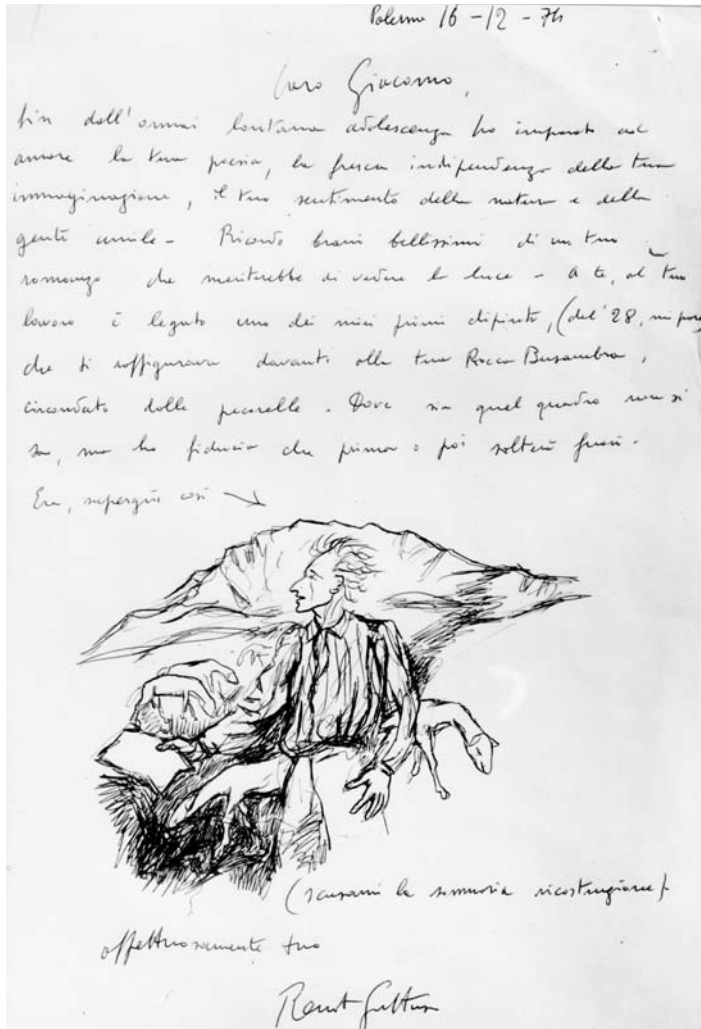 Palermo 16-12-74
Caro Giacomo,
fin dall'ormai lontana adolescenza ho imparato ad
amare la tua poesia, la fresca indipendenza della tua
immaginazione, il tuo sentimento della natura e della
gente umile - Ricordo brani bellissimi di un tuo
romanzo che meriterebbe di vedere la luce - A te, al tuo
lavoro è legato uno dei miei primi dipinti, (del '28, mi pare)
che ti raffigurava davanti alla tua Rocca Busambra,
circondato dalle pecorelle. Dove sia quel quadro non si
sa, ma ho fiducia che prima o poi salterà fuori.
Era, così
(scusami la sommaria ricostruzione).
affettuosamente tuo
Renato Guttuso